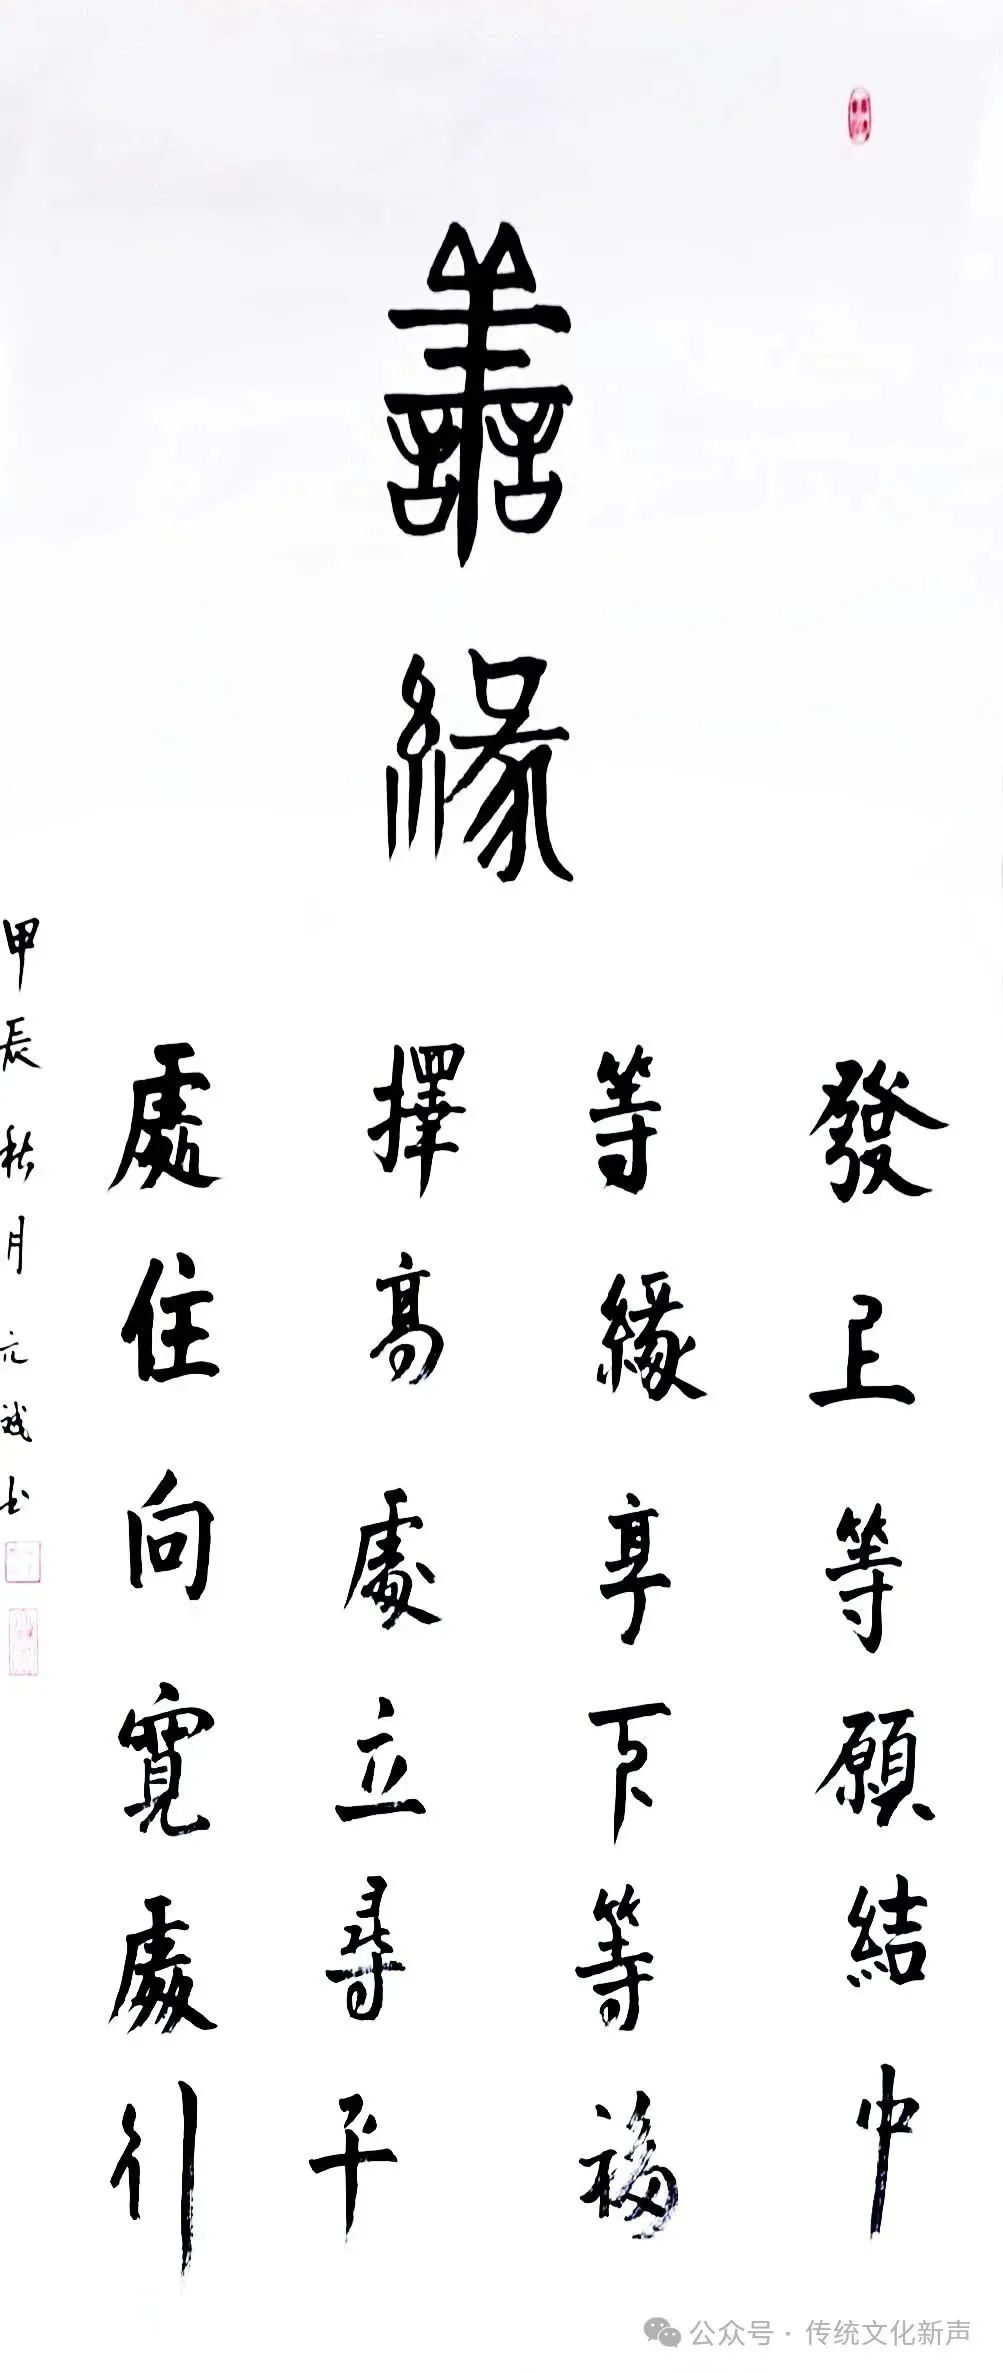 善緣
發上等願結中
等緣享下等福
擇高處立尋平
處住向寬處行
甲辰秋月元誠書
公众号·传统文化新声